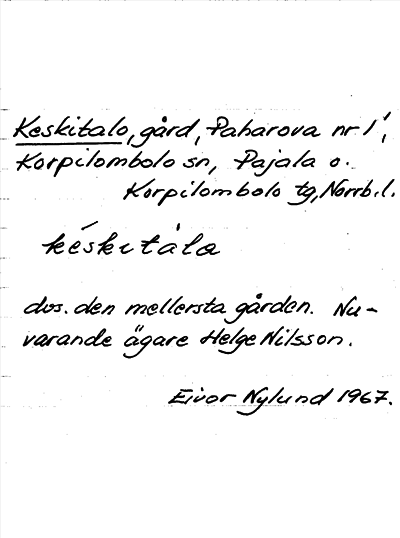 Keskitalo, gård, Paharova nr 1,
Korpilombolo sn, Pajala o.
Korpilombolo tg, Norrb. l.
késkitàla
dvs. den mellersta gården. Nu-
varande ägare Helge Nilsson.
Eivor Nylund 1967.